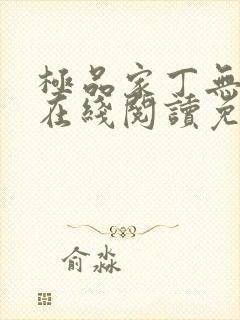 極品家丁無
在綫閱讀免
俞淼